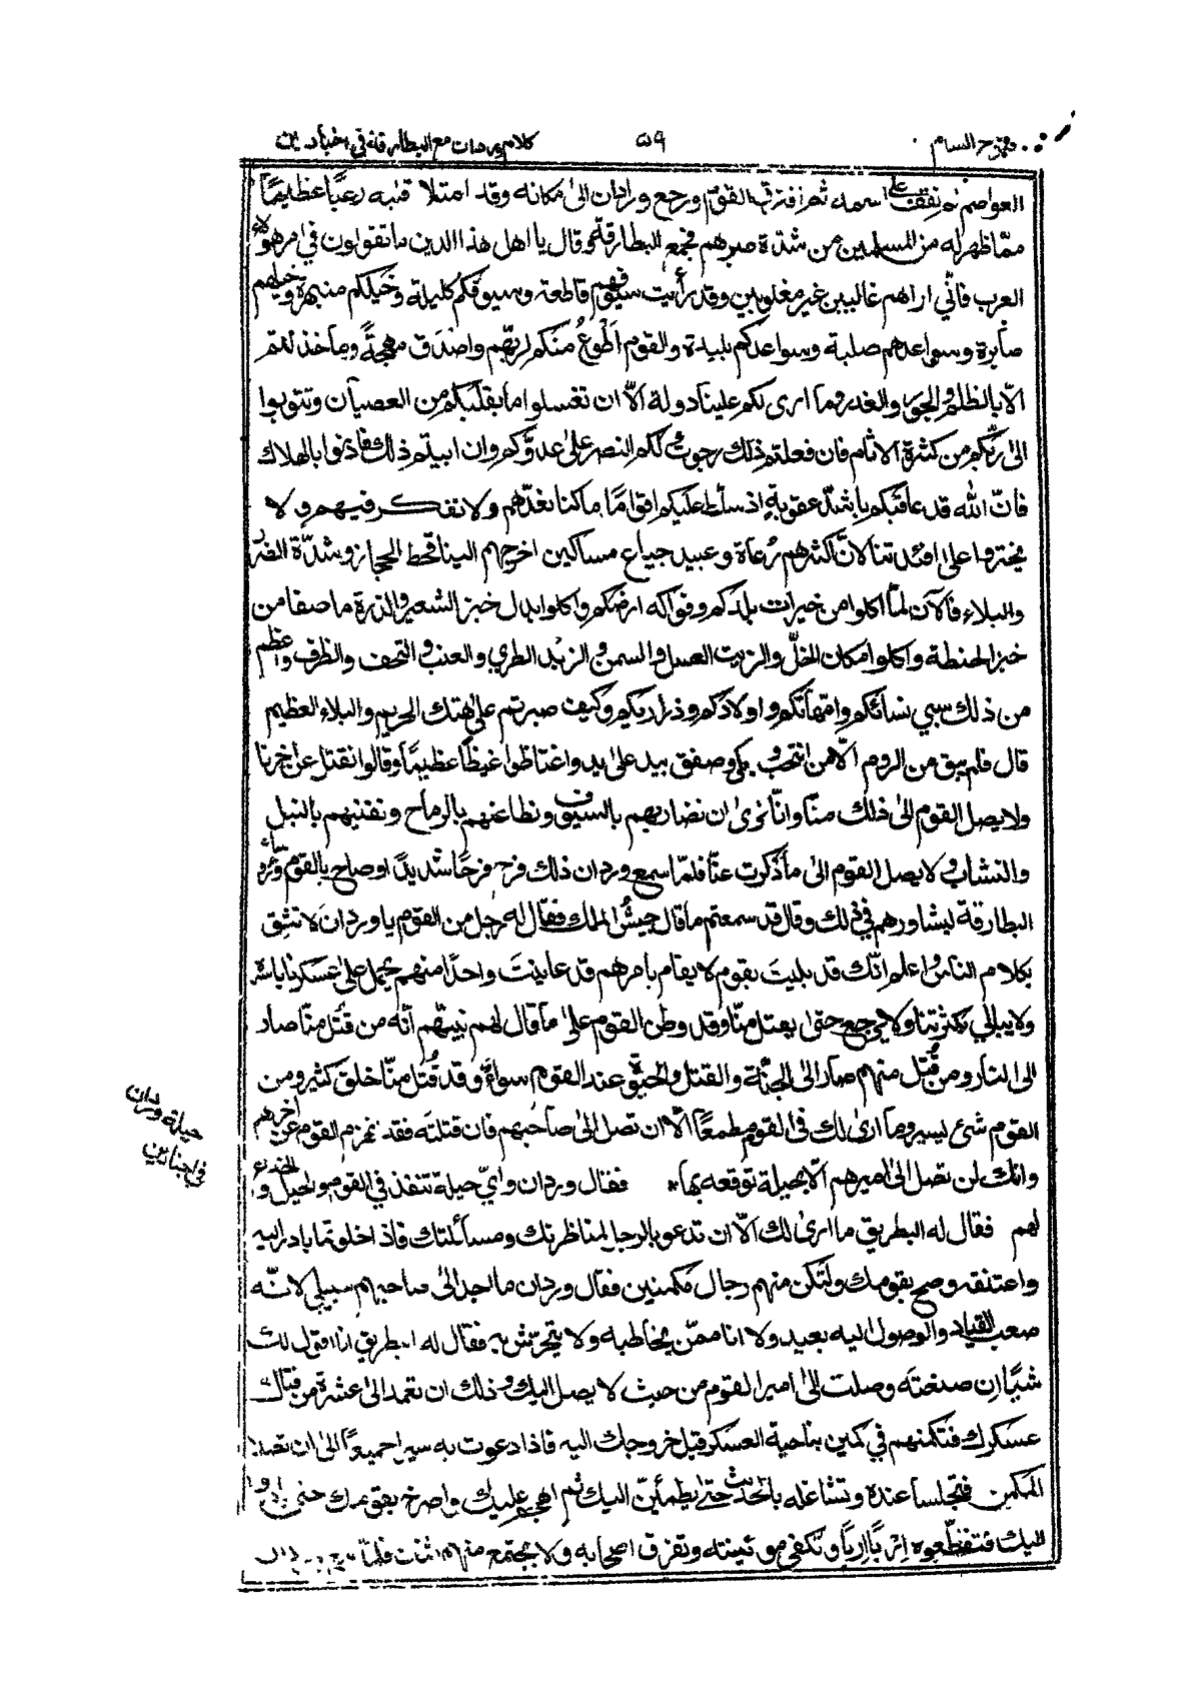 فتوح الشام
٥٩
كلام وردان مع البطارقة في اجنادين
العواصم ثم نقف على اسمه ثم افترق القوم ورجع وردان الى مكانه وقد امتلا قلبه رعبًا عظيمًا
ممّا ظهر له من المسلمين من شدّة صبرهم فجمع البطارقة وقال يا اهل هذا الدين ما تقولون في امر هؤلاء
العرب فانّي اراهم غالبين غير مغلوبين وقد رأيت سيوفهم قاطعة وسيوفكم كليلة وخيلكم منبهرة وخيلهم
صابرة وسواعدهم صلبة وسواعدكم بليدة والقوم اَطْوعُ منكم لربّهم واصدَق مهجةً وما خذلتم
الّا بالظلم والجور والغدر وما ارى لكم علينا دولة الّا ان تغسلوا ما بقلبكم من العصيان وتتوبوا
الىٰ ربّكم من كثرة الاثام فان فعلتم ذلك رجوتُ لكم النصر علىٰ عدوّكم وان ابيتم ذلك فاذنوا بالهلاك
فانّ اللّٰه قد عاقبكم باشدّ عقوبةٍ اذ سلّط عليكم اقوامًا ما كنّا نعدّهم ولا نفكر فيهم ولا
يخترموا علىٰ افئدتنا لانّ اكثرهم رُعاة وعبيد جياع مساكين اخرجهم الينا قحط الحجاز وشدّة الضرّ
والبلاء فالآن لمّا اكلوا من خيرات بلدكم وفواكه ارضكم واكلوا بدل خبز الشعير والذرة ما صفا من
خبز الحنطة واكلوا مكان الخلّ والزيت العسل والسمن والزبد الطري والعنب والتحف والظرف واعظم
من ذلك سبي نسائكم وامّهاتكم واولادكم وذراريكم وكيف صبرتم علىٰ هتك الحريم والبلاء العظيم
قال فلم يبق من الروم الّا من انتحب وبكى وصفق بيد علىٰ يد واغتاظوا غيظًا عظيمًا وقالوا نقتل عن اخرنا
ولا يصل القوم الىٰ ذلك منّا وانّا نرىٰ ان نضاربهم بالسيوف ونطاعنهم بالرماح ونفنيهم بالنبل
والنشاب ولا يصل القوم الىٰ ما ذكرت عنّا فلمّا سمع وردان ذلك فرح فرحًا شديدًا وصاح بالقوم
البطارقة ليشاورهم في ذلك وقال قد سمعتم ما قال جيشُ الملك فقال له رجل من القوم يا وردان لا تثق
بكلام الناس واعلم انّك قد بليتَ بقوم لا يقام بامرهم قد عاينتَ واحدًا منهم يحمل علىٰ عسكرنا باسره
ولا يبالي بكثرتنا ولا يرجع حتىٰ يقتل منّا وقد وطن القوم علىٰ ما قال لهم نبيّهم انّه من قُتل منّا صار
الى النار ومن قُتل منهم صار الى الجنّة والقتل والحيٰوة عند القوم سواءٌ وقد قُتل منّا خلق كثير ومن
القوم شئ يسير وما ارىٰ لك في القوم مطمعًا الّا ان تصل الىٰ صاحبهم فان قتلتَه فقد تهزم القوم عن اخرهم
وانك لن تصل الىٰ اميرهم الّا بحيلة توقعه بها* فقال وردان وايّ حيلة تنفذ في القوم والحيل والخدع
لهم فقال له البطريق ما ارىٰ لك الّا ان تدعو بالرجل لمناظرتك ومسائلتك فاذا خلوتما بادر اليه
واعتنقه وصح بقومك ولتكن منهم رجال مكمنين فقال وردان ما اجد الىٰ صاحبهم سبيلًا لانّه
صعب القياد والوصول اليه بعيد ولا انا ممّن يخاطبه ولا يتحرّش به فقال له البطريق انا اقول لك
شيًا ان صنعته وصلت الىٰ امير القوم من حيث لا يصل اليك وذلك ان تعمد الىٰ عشرة من
عسكرك فتكمنهم في كمين بناحية العسكر قبل خروجك اليه فاذا دعوت به سيرا جميعًا الىٰ ان تصلا
المكمن فتجلسا عنده وتشاغله بالحديث حتىٰ يطمئنّ اليك ثم اهجم عليك واصرخ بقومك حتى
اليك فتقطّعوه اِربًا اِربًا وتكفى مؤنته وتفرق اصحابه ولا يجتمع منهم اثنان فلمّا
حيلة وردان
في اجنادين